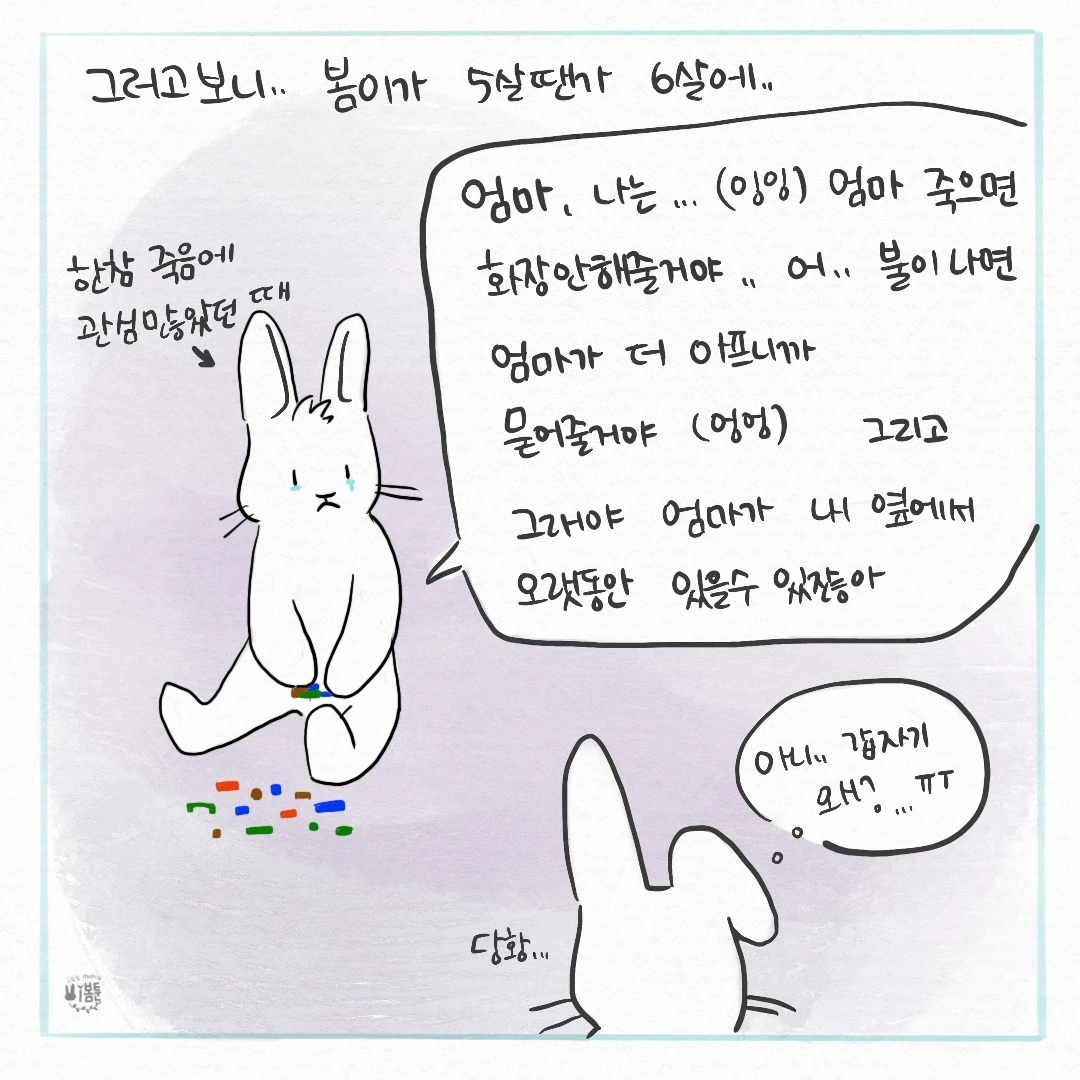 그러고보니.. 봄이가 5살땐가 6살에..
엄마, 나는... (잉잉) 엄마 죽으면
화장안해줄거야.. 어.. 불이나면
엄마가 더 아프니까
묻어줄거야 (엉엉) 그리고
그래야 엄마가 내 옆에서
오랫동안 있을수 있잖아
한참 죽음에
관심많았던 때
아니.. 갑자기
왜?... ㅠㅜ
당황...